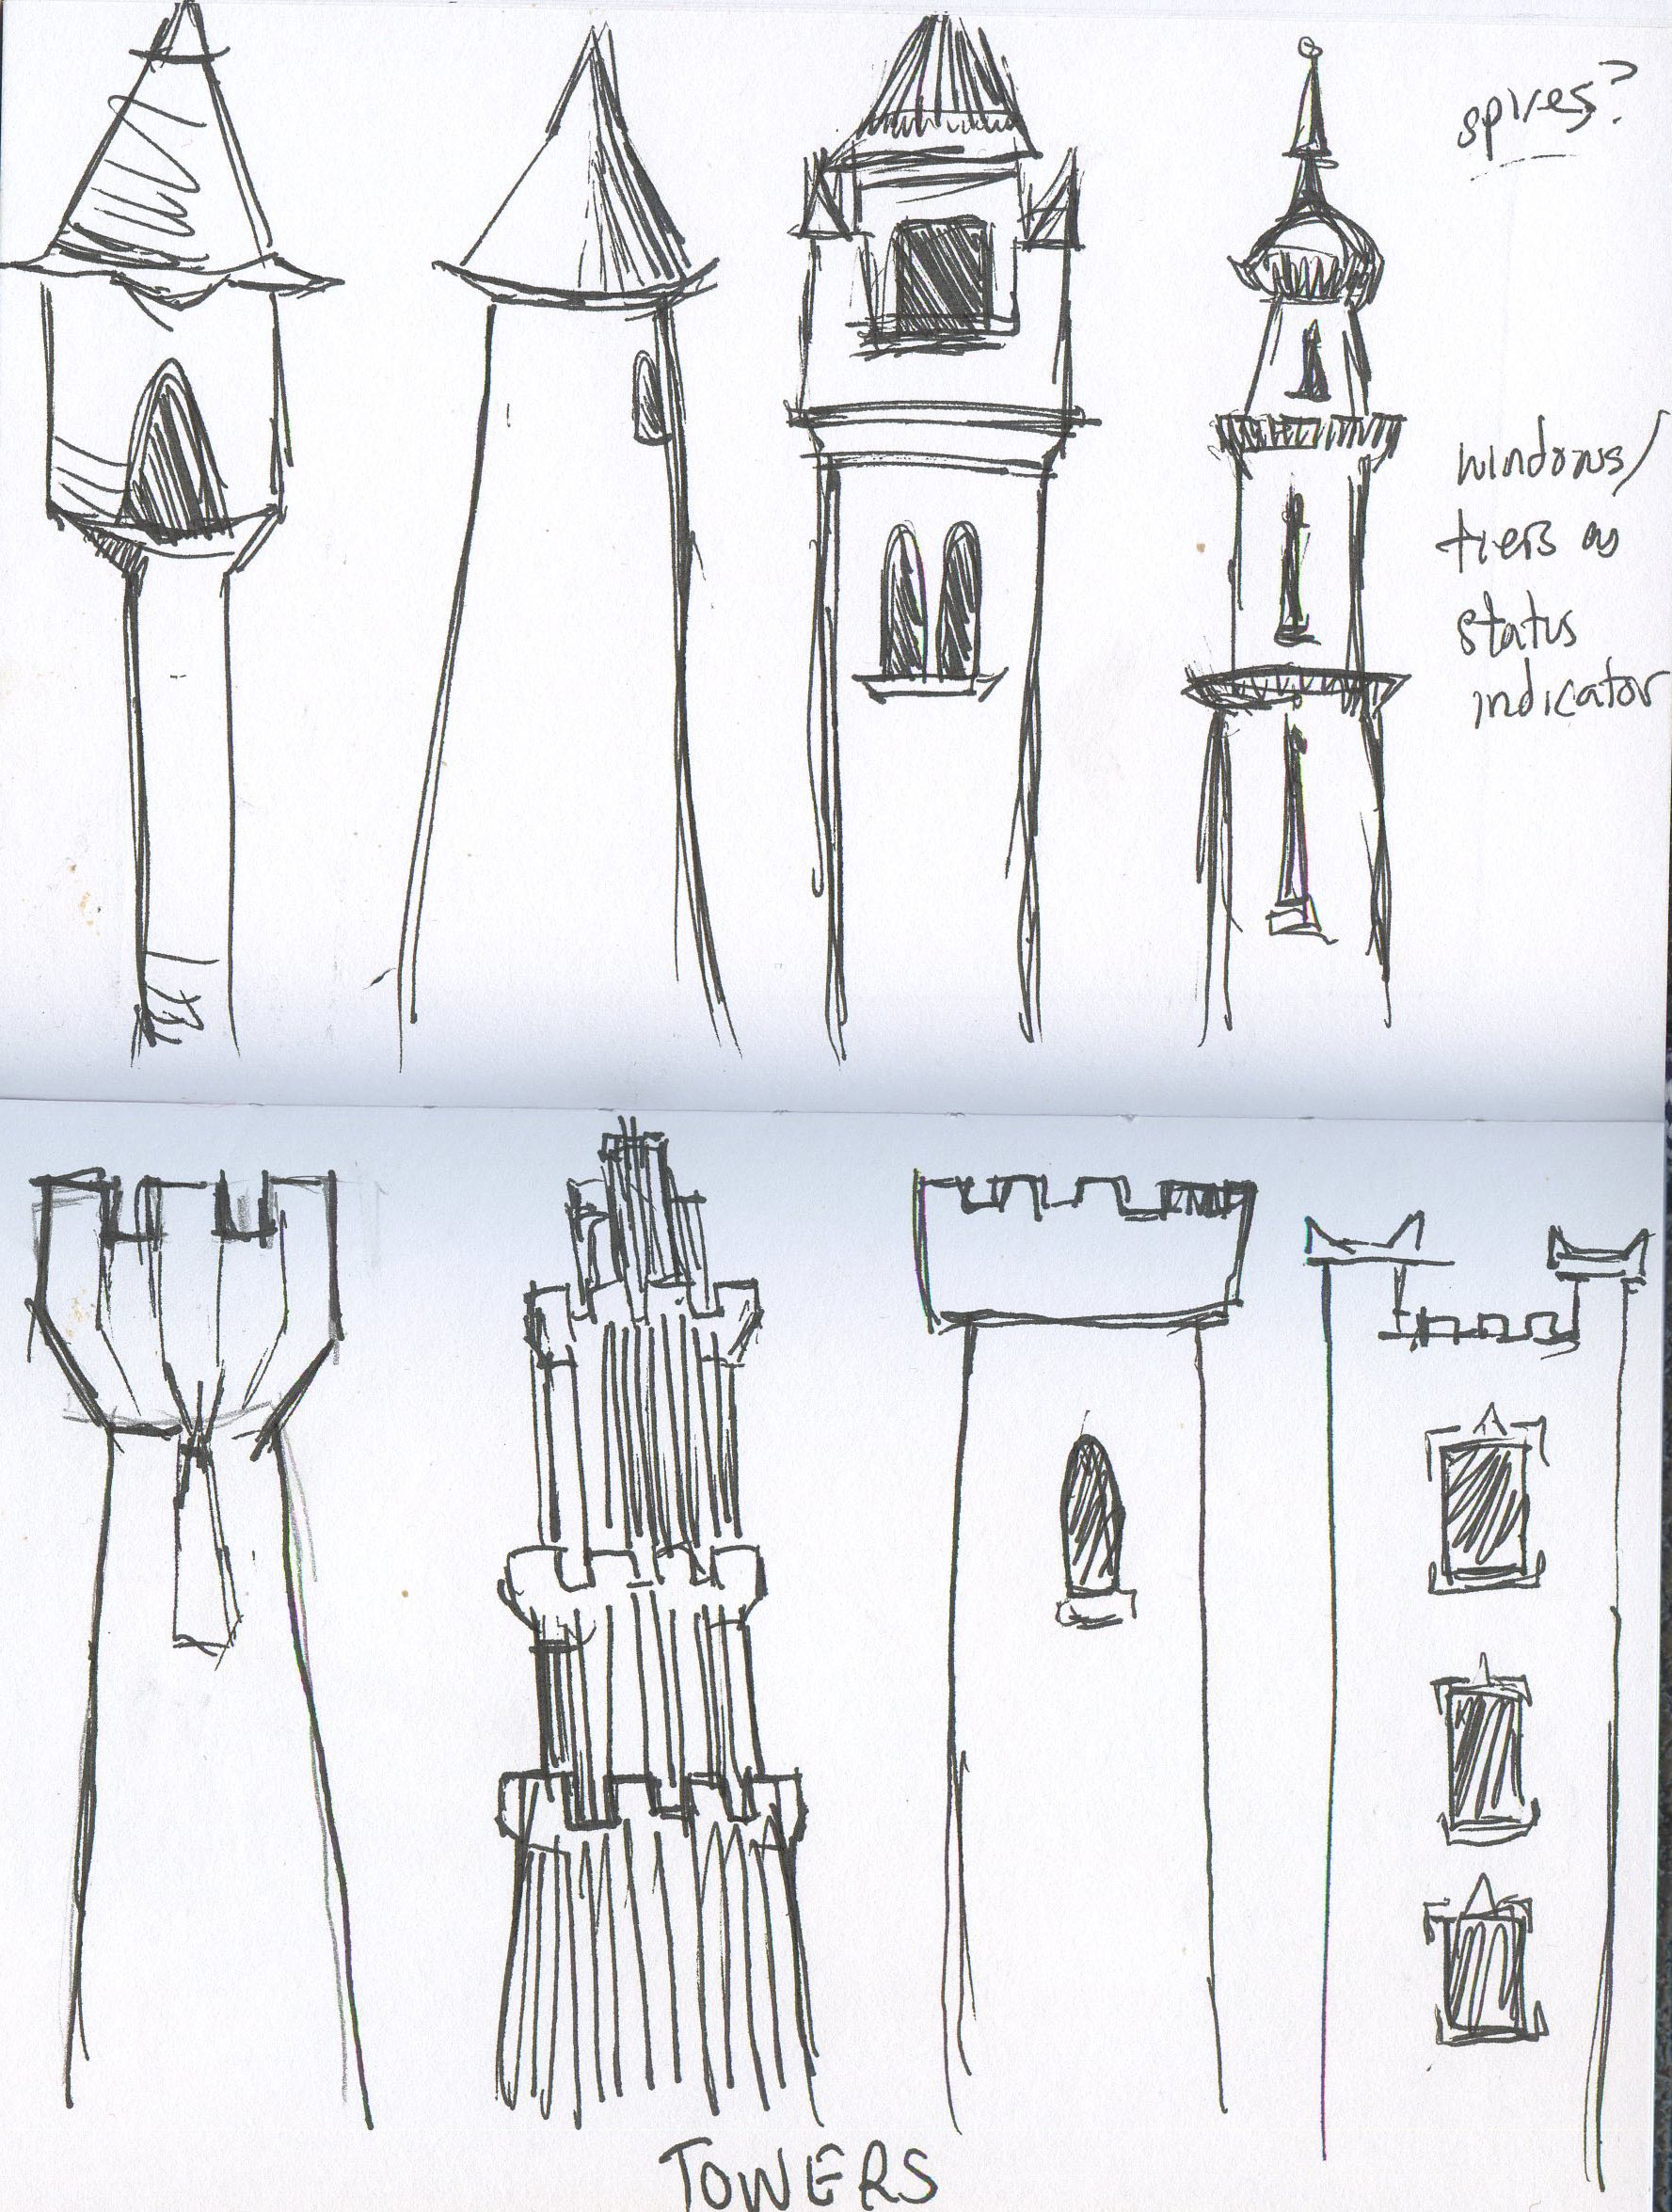 spires?
windows/
tiers as
status
indicator
TOWERS